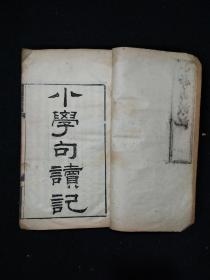 小學句讀記